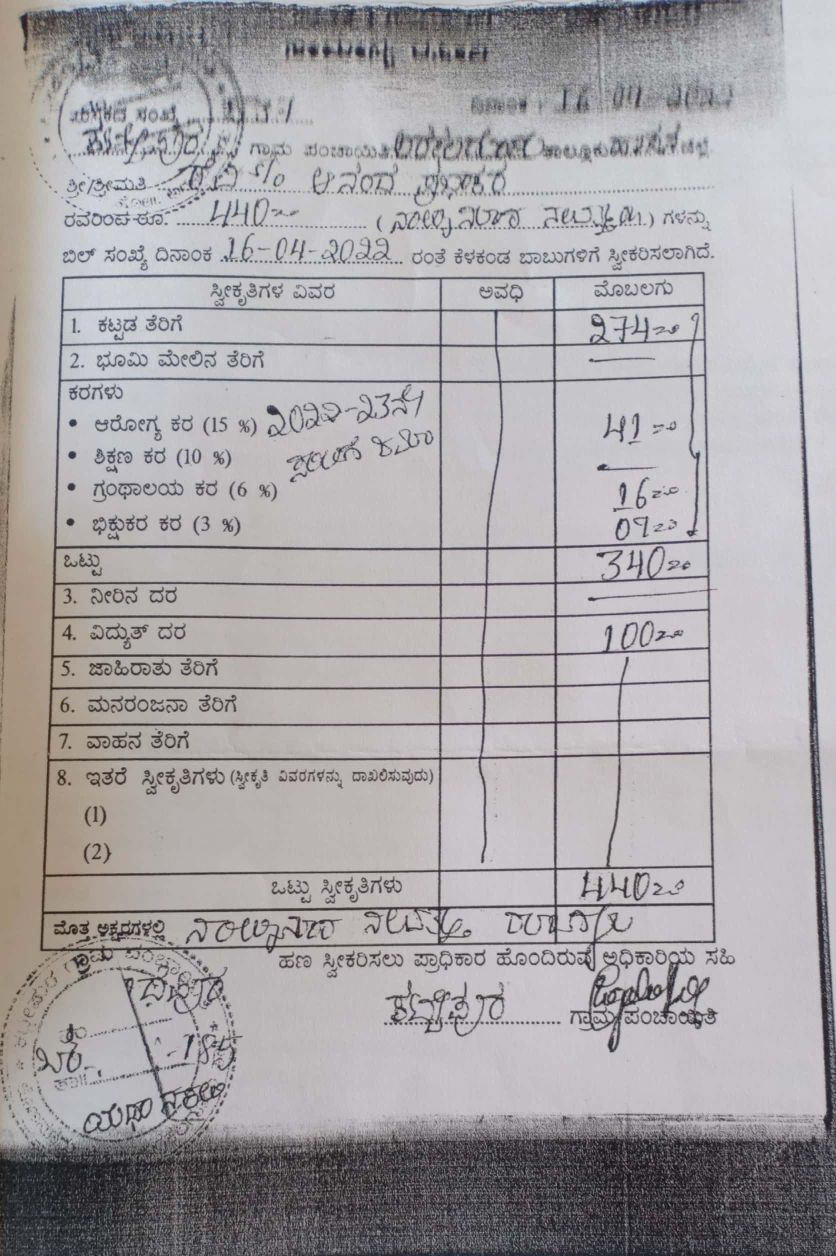 ಪುಸ್ತಕದ ಸಂಖ್ಯೆ ದಿನಾಂಕ : 16-04-2022
ಗ್ರಾಮ ಪಂಚಾಯಿತಿ ತಾಲ್ಲೂಕು ಜಿಲ್ಲೆ
ಶ್ರೀ/ಶ್ರೀಮತಿ ರವಿ S/o ಆನಂದ
ರವರಿಂದ ರೂ. 440=00 ( ನಾಲ್ಕುನೂರಾ ನಲವತ್ತು ರೂ.) ಗಳನ್ನು
ಬಿಲ್ ಸಂಖ್ಯೆ ದಿನಾಂಕ 16-04-2022 ರಂತೆ ಕೆಳಕಂಡ ಬಾಬುಗಳಿಗೆ ಸ್ವೀಕರಿಸಲಾಗಿದೆ.
ಸ್ವೀಕೃತಿಗಳ ವಿವರ ಅವಧಿ ಮೊಬಲಗು
1. ಕಟ್ಟಡ ತೆರಿಗೆ 274=00
2. ಭೂಮಿ ಮೇಲಿನ ತೆರಿಗೆ
ಕರಗಳು
• ಆರೋಗ್ಯ ಕರ (15 %) 2022-23ನೇ 41=00
• ಶಿಕ್ಷಣ ಕರ (10 %)
• ಗ್ರಂಥಾಲಯ ಕರ (6 %) 16=00
• ಭಿಕ್ಷುಕರ ಕರ (3 %) 09=00
ಒಟ್ಟು 340=00
3. ನೀರಿನ ದರ
4. ವಿದ್ಯುತ್ ದರ 100=00
5. ಜಾಹಿರಾತು ತೆರಿಗೆ
6. ಮನರಂಜನಾ ತೆರಿಗೆ
7. ವಾಹನ ತೆರಿಗೆ
8. ಇತರೆ ಸ್ವೀಕೃತಿಗಳು (ಸ್ವೀಕೃತಿ ವಿವರಗಳನ್ನು ದಾಖಲಿಸುವುದು)
(1)
(2)
ಒಟ್ಟು ಸ್ವೀಕೃತಿಗಳು 440=00
ಮೊತ್ತ ಅಕ್ಷರಗಳಲ್ಲಿ ನಾಲ್ಕುನೂರಾ ನಲವತ್ತು ರೂಪಾಯಿ
ಹಣ ಸ್ವೀಕರಿಸಲು ಪ್ರಾಧಿಕಾರ ಹೊಂದಿರುವ ಅಧಿಕಾರಿಯ ಸಹಿ
ಗ್ರಾಮ ಪಂಚಾಯಿತಿ